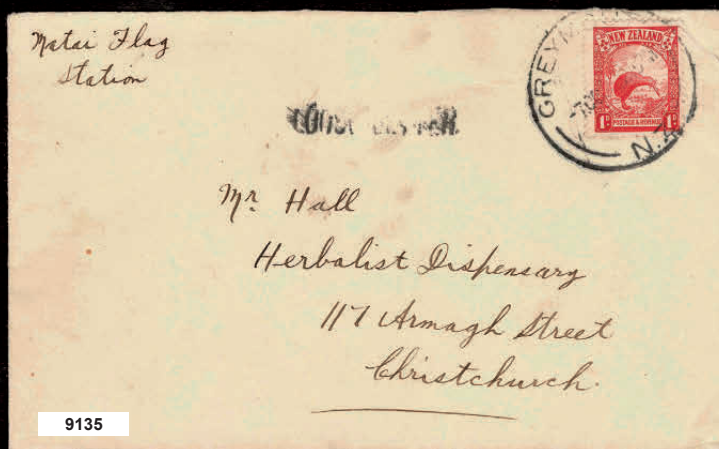 Matai Flag
Station
NEW ZEALAND
1D
POSTAGE & REVENUE
1D
N.Z.
LOOSE LETTER.
Mr. Hall
Herbalist Dispensary
117 Armagh Street
Christchurch.
9135